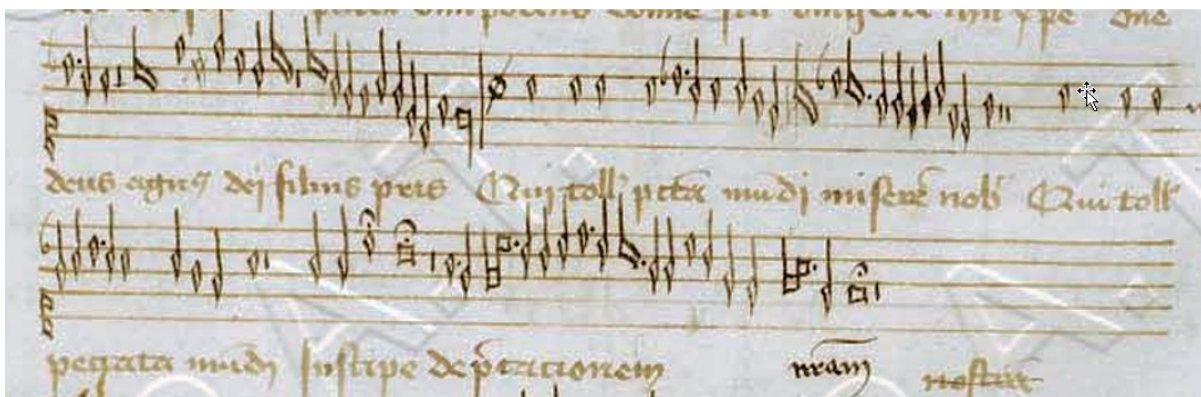 deus agnus dei filius pris Qui toll pcta mudi misere nob Qui toll
peccata mudi Suscipe deptacionem nram nostra